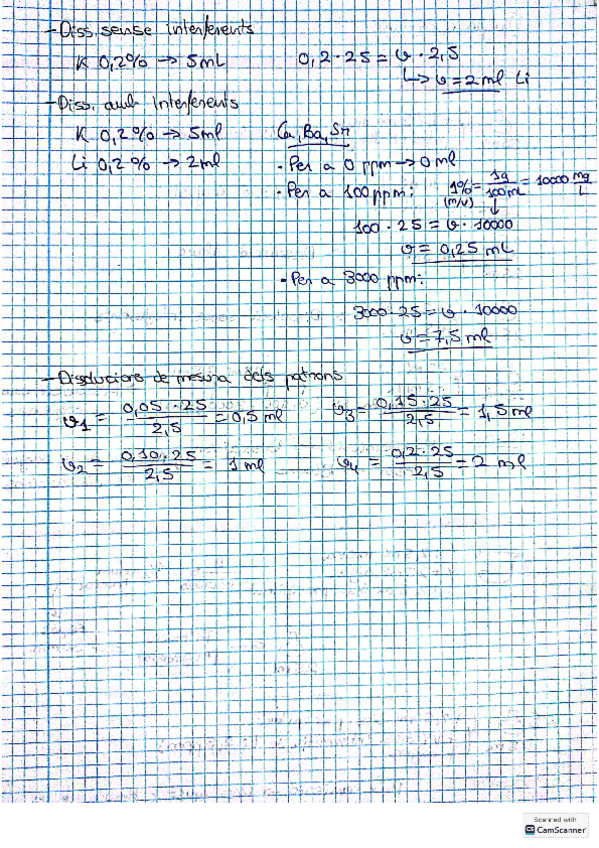 - Diss. sense interferents
K 0,2% → 5mL
0,2 · 25 = v · 2,5
↳ v = 2 ml Li
- Diss. amb interferents
K 0,2% → 5ml
Li 0,2% → 2ml
Ca, Ba, Sr
· Per a 0 ppm → 0 ml
· Per a 100 ppm: 1% (m/v) = 1g / 100 mL = 10000 mg / L
100 · 25 = v · 10000
v = 0,25 mL
· Per a 3000 ppm:
3000 · 25 = v · 10000
v = 7,5 ml
- Dissolucions de mesura dels patrons
v1 = 0,05 · 25 / 2,5 = 0,5 ml
v3 = 0,15 · 25 / 2,5 = 1,5 ml
v2 = 0,10 · 25 / 2,5 = 1 ml
v4 = 0,2 · 25 / 2,5 = 2 ml
Scanned with
CS CamScanner